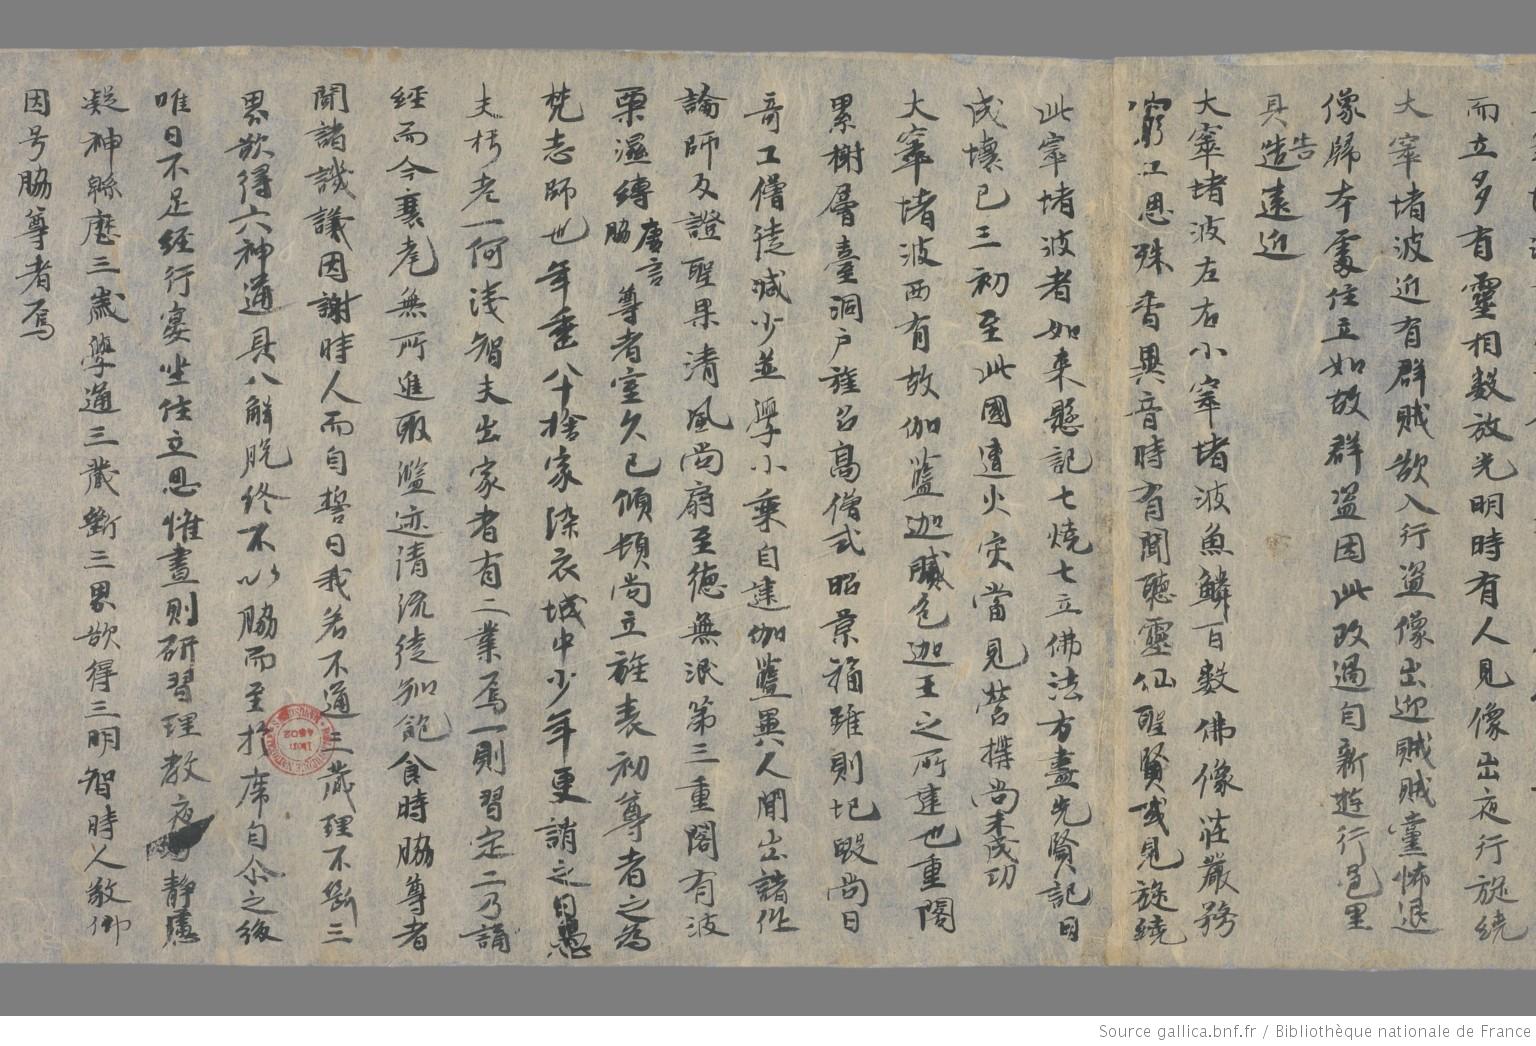 而立多有靈相數放光明時有人見像出夜行旋繞
大窣堵波近有群賊欲入行盜像出迎賊賊黨怖退
像歸本處住立如故群盜因此改過自新遊行邑里
具造告遠近
大窣堵波左右小窣堵波魚鱗百數佛像莊嚴務
窮工思殊香異音時有聞聽靈仙聖賢或見旋繞
此窣堵波者如来懸記七燒七立佛法方盡先賢記曰
成壞已三初至此國遭火灾當見營構尚未成功
大窣堵波西有故伽藍迦膩色迦王之所建也重閣
累榭層臺洞户旌召高僧式昭景福雖則圮毀尚曰
奇工僧徒減少並學小乘自建伽藍異人間出諸作
論師及證聖果清風尚扇至德無泯第三重閣有波
栗濕縛唐言脇尊者室久已傾頓尚立旌表初尊者之為
梵志師也年垂八十捨家染衣城中少年更誚之曰愚
夫朽老一何淺智夫出家者有二業焉一則習定二乃誦
經而今衰耄無所進取濫迹清流徒知飽食時脇尊者
聞諸譏議因謝時人而自誓曰我若不通三藏理不斷三
界欲得六神通具八解脫終不以脇而至於席自尒之後
唯日不足經行宴坐住立思惟晝則研習理教夜靜慮
凝神綿歷三歲學通三藏斷三界欲得三明智時人敬仰
因号脇尊者焉
Source gallica.bnf.fr / Bibliothèque nationale de France